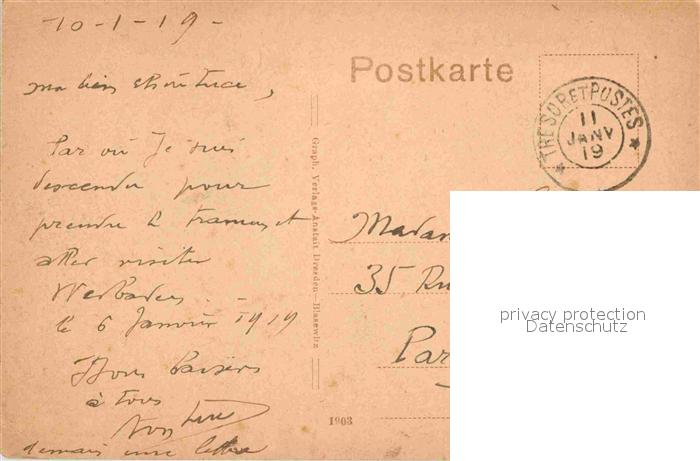 10-1-19-
ma bien chère
Par où je suis
descendu pour
prendre le tramway et
aller visiter
Wiesbaden
le 6 Janvier 1919
Bons baisers
à tous
demain une lettre
Postkarte
TRESOR ET POSTES
11
JANV
19
Graph. Verlags-Anstalt Dresden-Blasewitz
1903
Madam
35 Ru
Par
privacy protection
Datenschutz